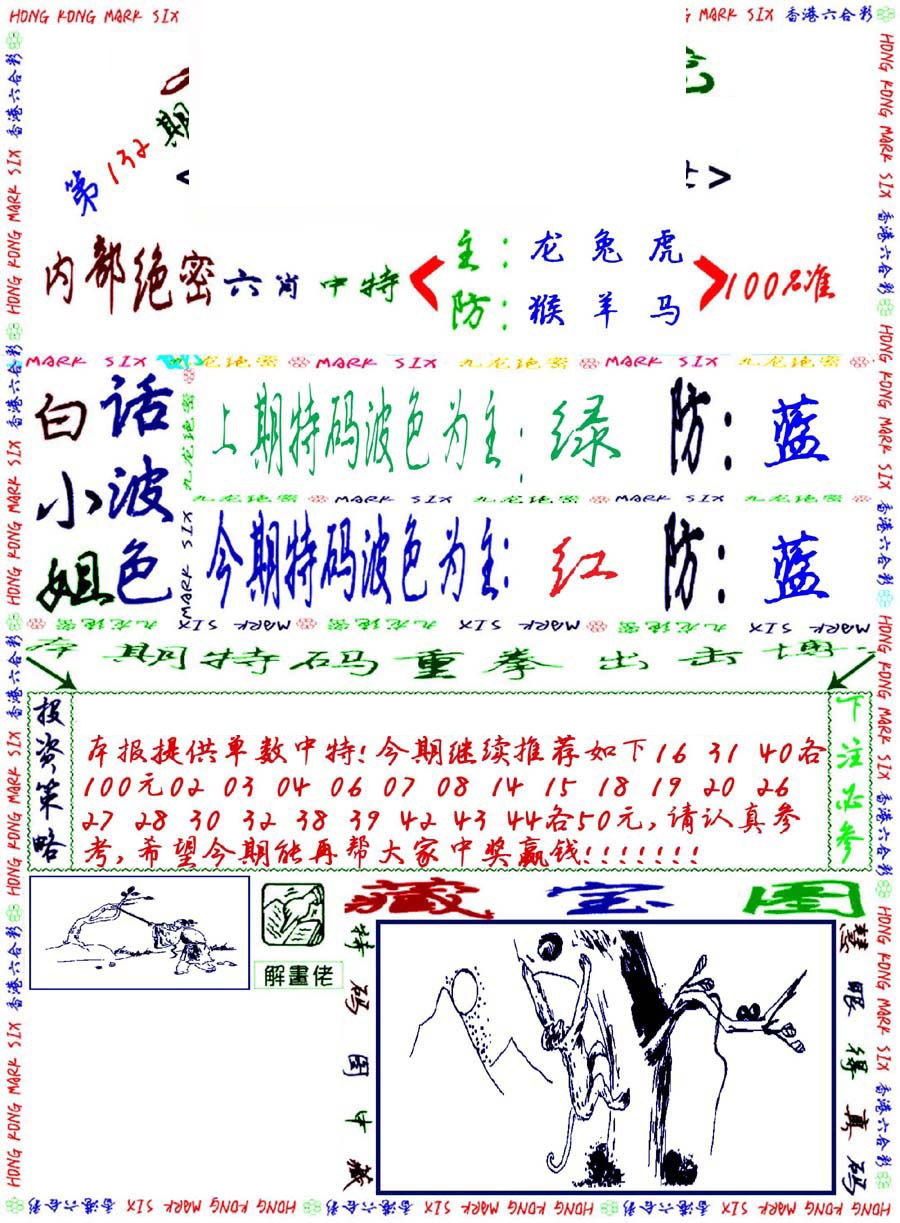 HONG KONG MARK SIX
MARK SIX 香港六合彩
第132期
内部绝密六肖中特
主：龙 兔 虎
防：猴 羊 马
100%准
MARK SIX 九龙绝密 MARK SIX 九龙绝密 MARK SIX 九龙绝密
白话
小波
姐色
上期特码波色为主：绿 防：蓝
九龙绝密 MARK SIX 九龙绝密 MARK SIX 九龙绝密
今期特码波色为主：红 防：蓝
MARK SIX 九龙绝密 MARK SIX 九龙绝密 MARK SIX 九龙绝密
本期特码重拳出击博
投资策略
本报提供单数中特！今期继续推荐如下16 31 40各
100元02 03 04 06 07 08 14 15 18 19 20 26
27 28 30 32 38 39 42 43 44各50元，请认真参
考，希望今期能再帮大家中奖赢钱！！！！！！！
下注必参
解畫佬
藏宝图
特码图中藏
慧眼得真码
HONG KONG MARK SIX 香港六合彩